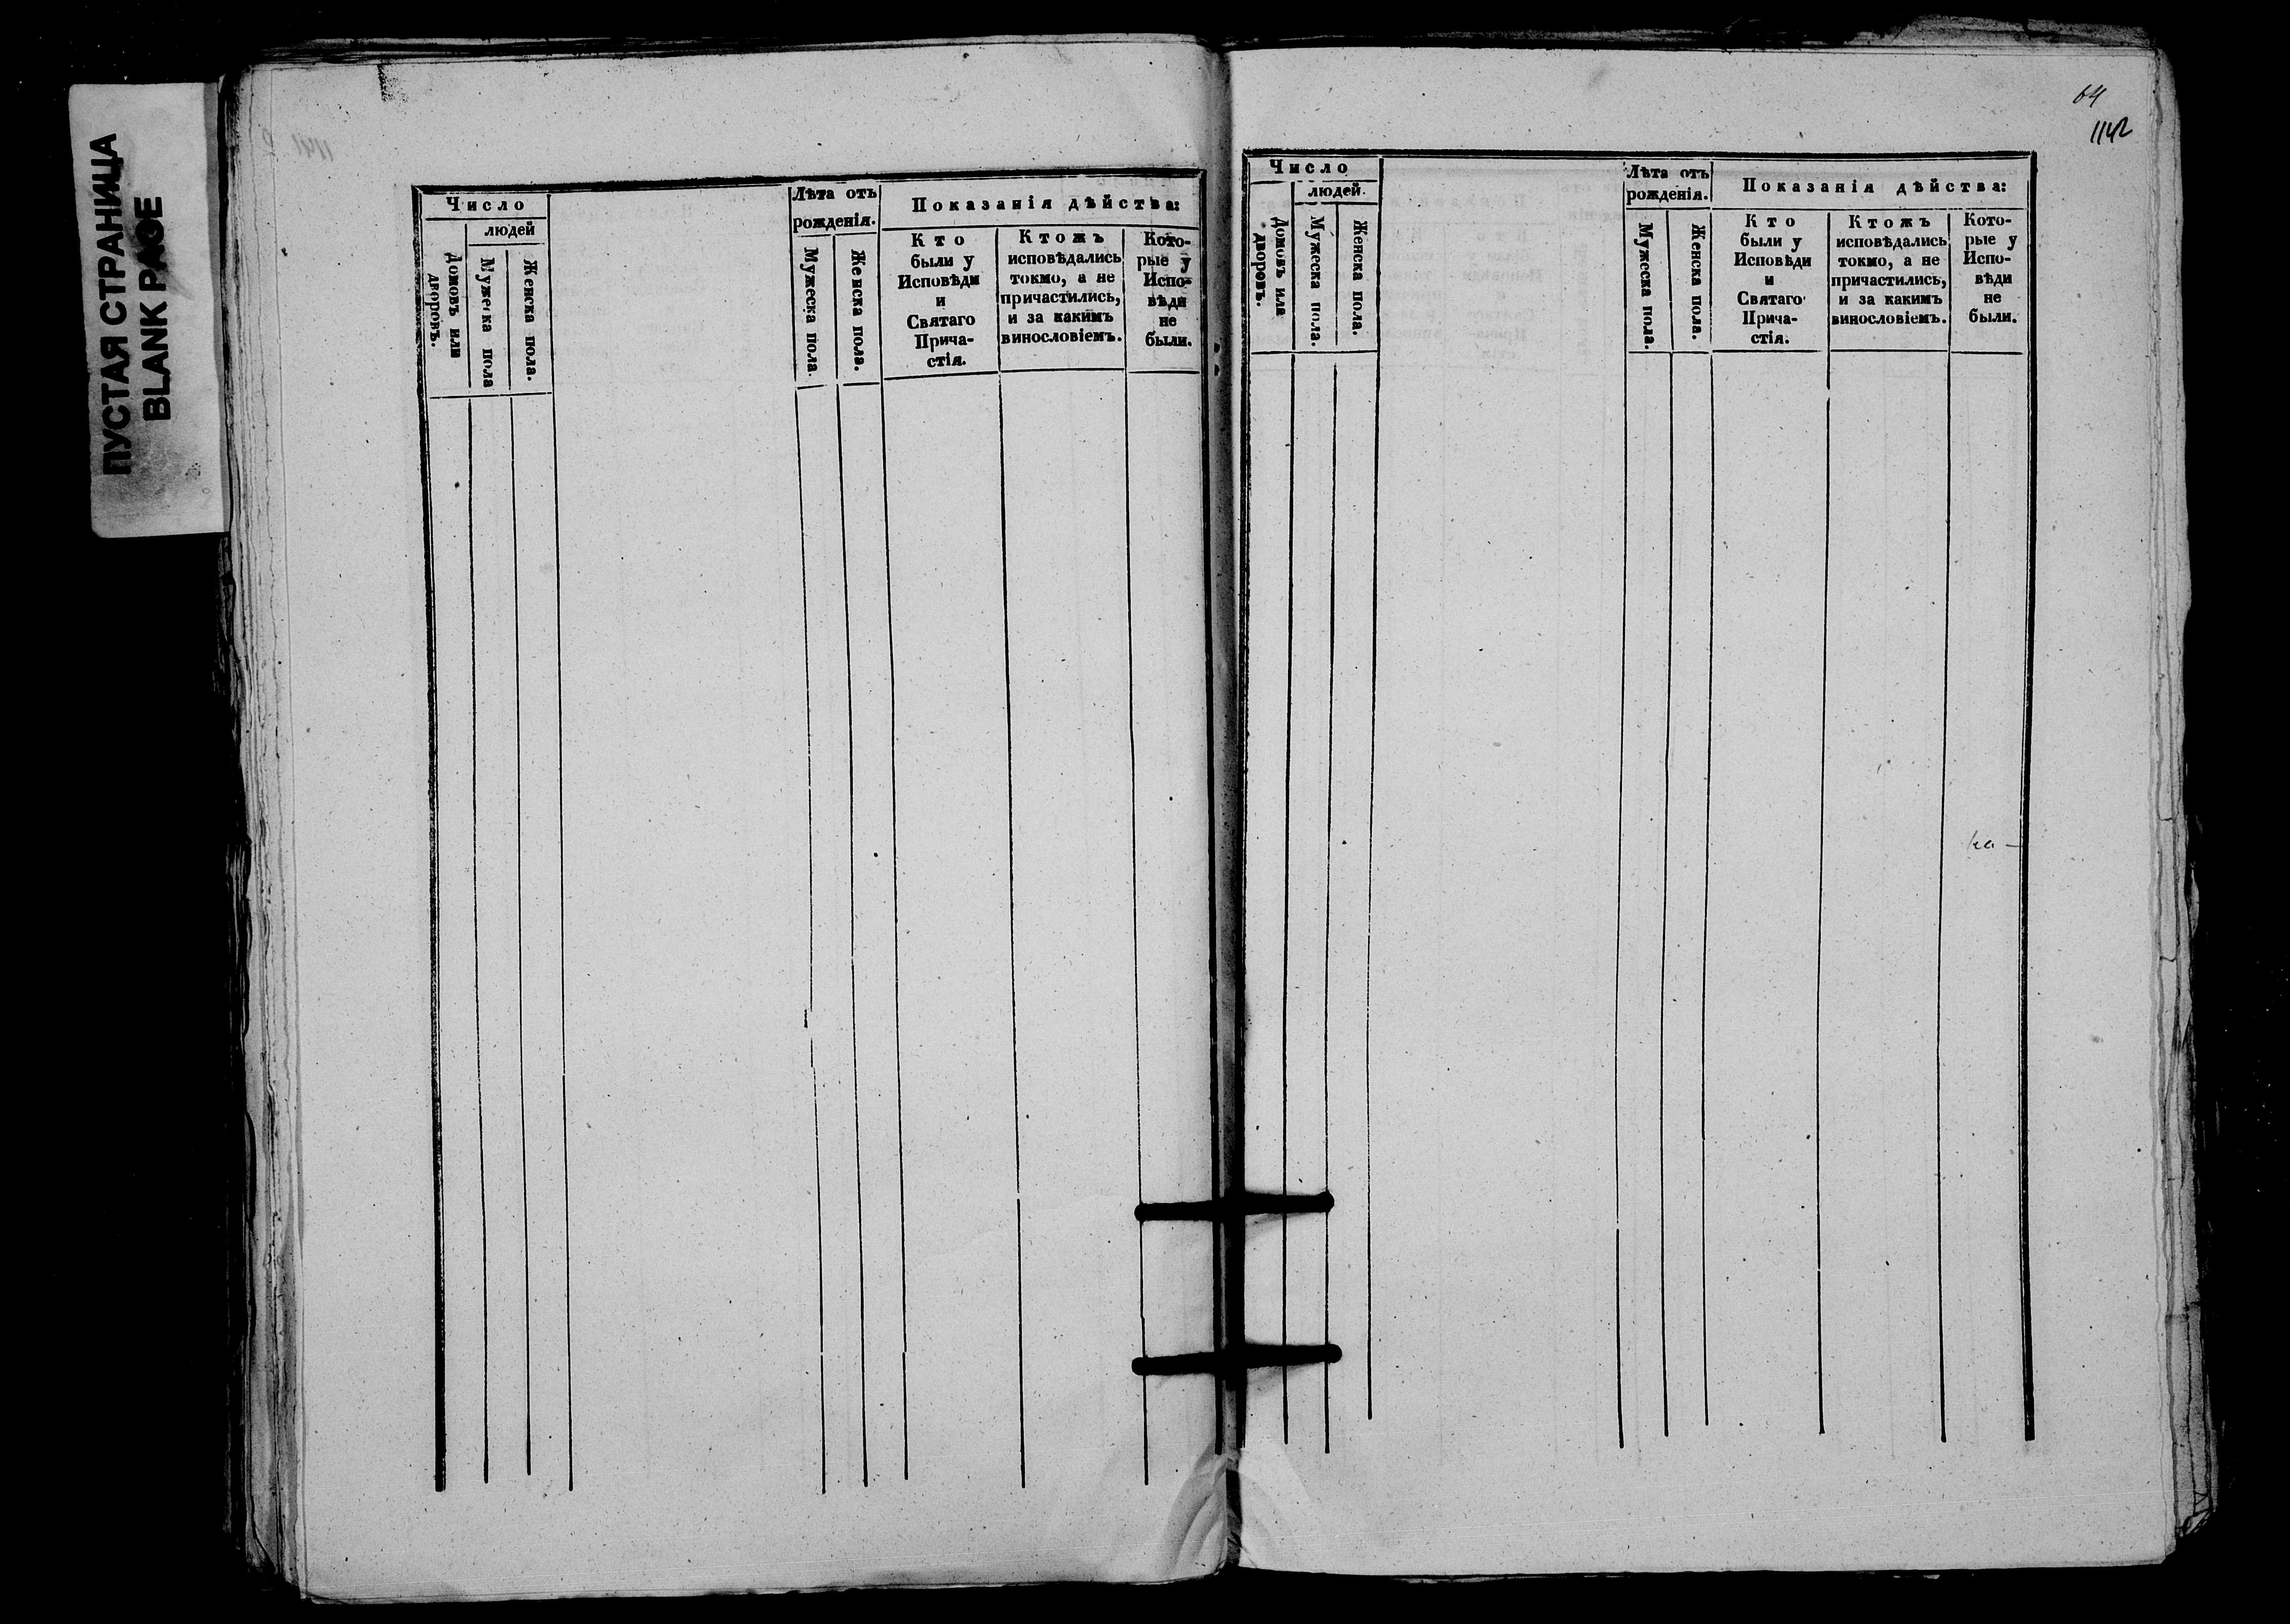 ПУСТАЯ СТРАНИЦА
BLANK PAGE
Число
людей
Домовъ или
дворовъ.
Мужеска пола
Женска пола.
Лѣта отъ
рожденія.
Мужеска пола.
Женска пола.
Показанія дѣйства:
Кто
были у
Исповѣди
и
Святаго
Прича-
стія.
Ктожъ
исповѣдались
токмо, а не
причастились,
и за какимъ
винословіемъ.
Кото-
рые у
Испо-
вѣди
не
были.
64
1142
Число
людей.
Домовъ или
дворовъ.
Мужеска пола.
Женска пола.
Лѣта отъ
рожденія.
Мужеска пола.
Женска пола.
Показанія дѣйства:
Кто
были у
Исповѣди
и
Святаго
Прича-
стія.
Ктожъ
исповѣдались
токмо, а не
причастились,
и за какимъ
винословіемъ.
Кото-
рые у
Испо-
вѣди
не
были.